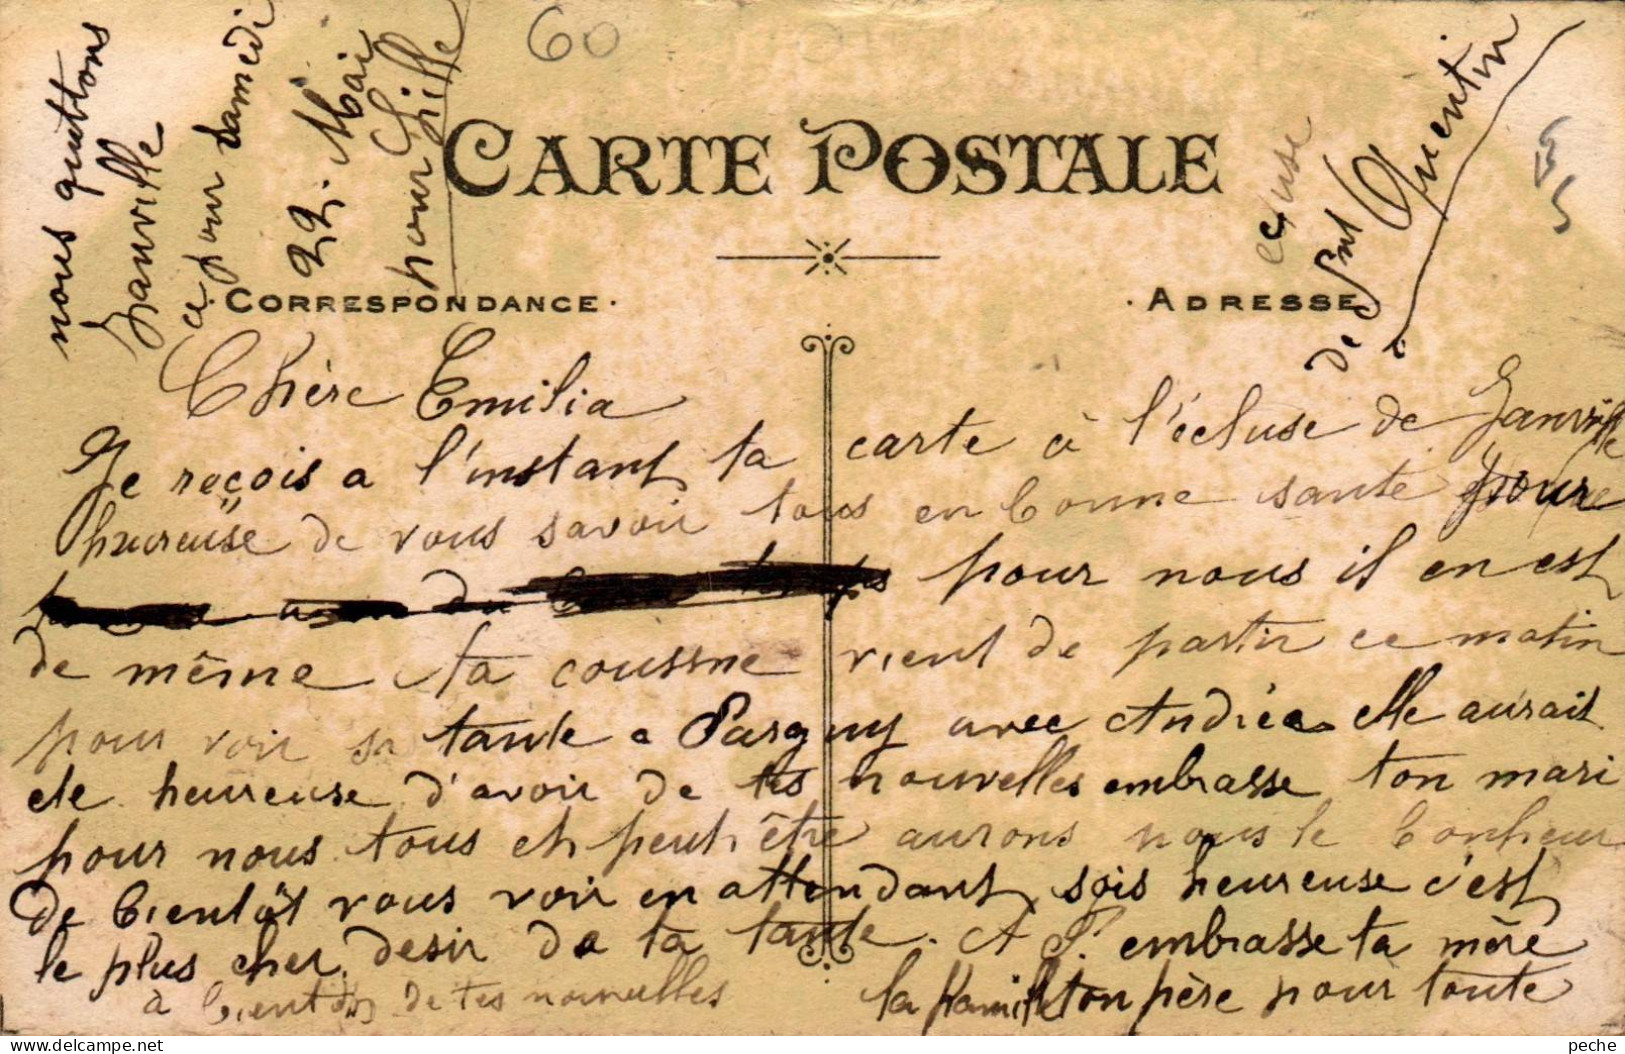 60
nous quittons
Janville
ce jour Samedi
22. Mai
pour Lille
CARTE POSTALE
CORRESPONDANCE
ADRESSE
ecluse
de Snt Quentin
Chère Emilia
Je reçois a l'instant ta carte à l'écluse de Janville
heureuse de vous savoir tous en bonne santé
pour nous il en est
de même ta cousine vient de partir ce matin
pour voir sa tante a Pargny avec Andréa elle aurait
ete heureuse d'avoir de tes nouvelles embrasse ton mari
pour nous tous et peut être aurons nous le bonheur
de bientôt vous voir en attendant sois heureuse c'est
le plus cher desir de ta tante. A P. embrasse ta mère
à bientôt de tes nouvelles
ton père pour toute
la famille
peche